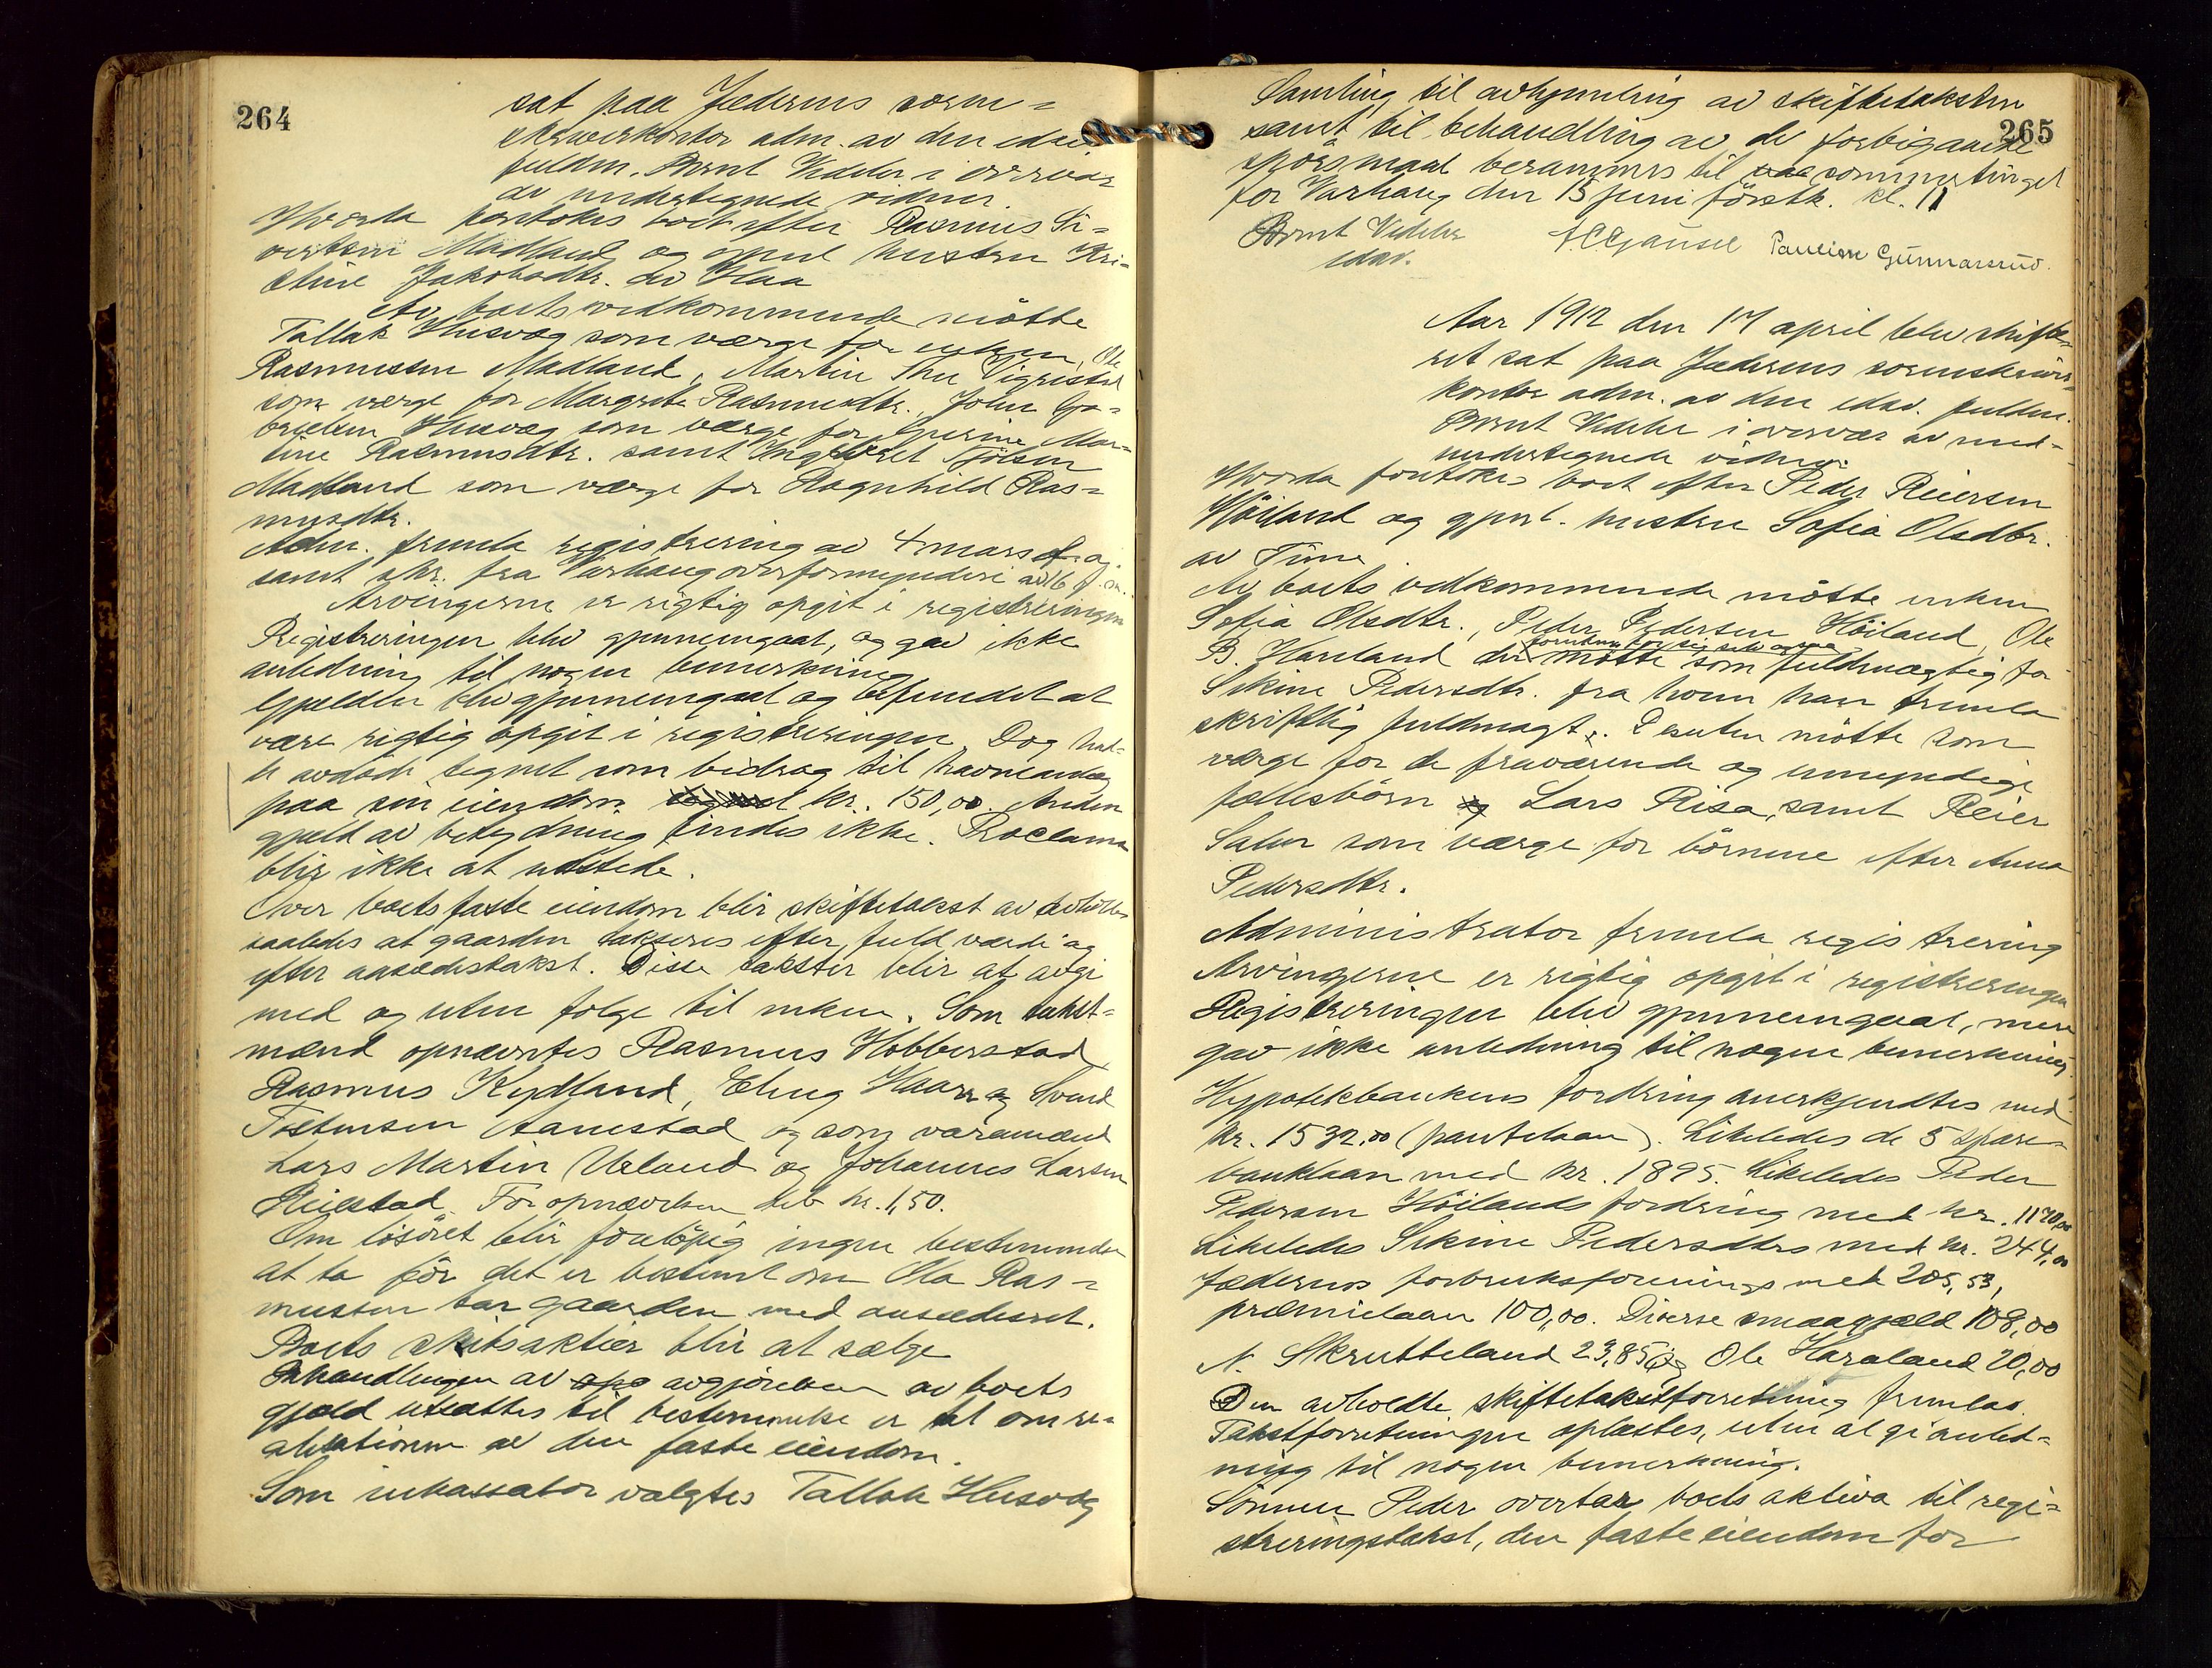 264
sat paa Jæderens soren=
skriverkontor adm. av den edsv.
fuldm. Bernt Vedeler i overvær
av undertegnede vidner.
Hvorda foretokes boet efter Rasmus Si=
vertsen Madland og gjenl. hustru Kri=
stine Jakobsdtr. av Haa
Av boets vedkommende mötte
Tallak Husvæg som værge for enken, Ole
Rasmussen Madland, Martin Thu Vigrestad
som værge for Margrete Rasmusdtr., John Ga=
brielsen Husvæg som værge for Gurine Mar=
tine Rasmusdtr. samt Ingebret Njölsen
Madland som værge for Ragnhild Ras=
musdtr.
Adm. fremla registrering av 4 mars d. a.
samt skr. fra Varhaug overformynderi av 16 f. m.
Arvingerne er rigtig opgit i registreringen
Registreringen blev gjennemgaat, og gav ikke
anledning til nogen bemerkning
Gjælden blev gjennemgaat og befundet at
være rigtig opgit i registreringen. Dog had=
de avdöde tegnet som bidrag til
paa sin eiendom kr. 150,00. Anden
gjæld av betydning findes ikke. Proclama
blir ikke at utstede.
Over boets faste eiendom blir skiftetakst at avholde
saaledes at gaarden takseres efter fuld værdi og
efter aasædestakst. Disse takster blir at avgi
med og uten folge til enken. Som takst=
mænd opnævntes Rasmus Hobberstad
Rasmus Kydland, Elling Haarr og Svend
Tostensen Aanestad og som varamænd
Lars Martin Ueland og Johannes Larsen
Reiestad. For opnævnelsen bet. kr. 1,50.
Om lösöret blir foreløpig ingen bestemmelse
at ta för det er bestemt om Ola Ras=
mussen tar gaarden med aasædesret.
Boets skibsaktier blir at sælge
Behandlingen av avgjörelsen av boets
gjæld utsættes til bestemmelse er tat om re=
alisationen av den faste eiendom.
Som inkassator valgtes Tallak Husvæg
265
Samling til avhjemling av skiftetaksten
samt til behandling av de forbigaaende
spörsmaal berammes til sommertinget
for Varhaug den 15 juni förstk. kl. 11
Bernt Vedeler
edsv.
A C Gausel Pauline Gunnarsrud.
Aar 1912 den 17 april blev skifte=
ret sat paa Jæderens sorenskriver=
kontor adm. av den edsv. fuldm.
Bernt Vedeler i overvær av med=
undertegnede vidner.
Hvorda foretokes boet efter Peder Reiersen
Höiland og gjenl. hustru Sofia Olsdtr.
av Time
Av boets vedkommende mötte enken
Sofia Olsdtr., Peder Pedersen Höiland, Ole
foruten for sig selv ogsaa
B. Haraland der mötte som fuldmægtig for
Sikine Pedersdtr. fra hvem han fremla
skriftlig fuldmagt. Desuten mötte som
værge for de fraværende og umyndige
fællesbörn Lars Risa, samt Reier
Salur som værge for börnene efter Anna
Pedersdtr.
Administrator fremla registrering
Arvingerne er rigtig opgit i registreringen
Registreringen blev gjennemgaat, men
gav ikke anledning til nogen bemerkning.
Hypotekbankens fordring anerkjendtes med
kr. 1532.00 (pantelaan). Likeledes de 5 spare=
banklaan med kr. 1895. Likeledes Peder
Pedersen Höilands fordring med kr. 1170,00
Likeledes Sikine Pedersdtrs med kr. 244,00
Jæderens forbruksforenings med 205,53,
præmielaan 100,00. Diverse smaagjæld 108,00
N. Skrutteland 23,85 og Ole Haraland 20,00
Den avholdte skiftetakstforretning fremlaa.
Takstforretningen oplæstes, uten at gi anled=
ning til nogen bemerkning.
Sönnen Peder overtar boets aktiva til regi=
streringstakst, den faste eiendom for